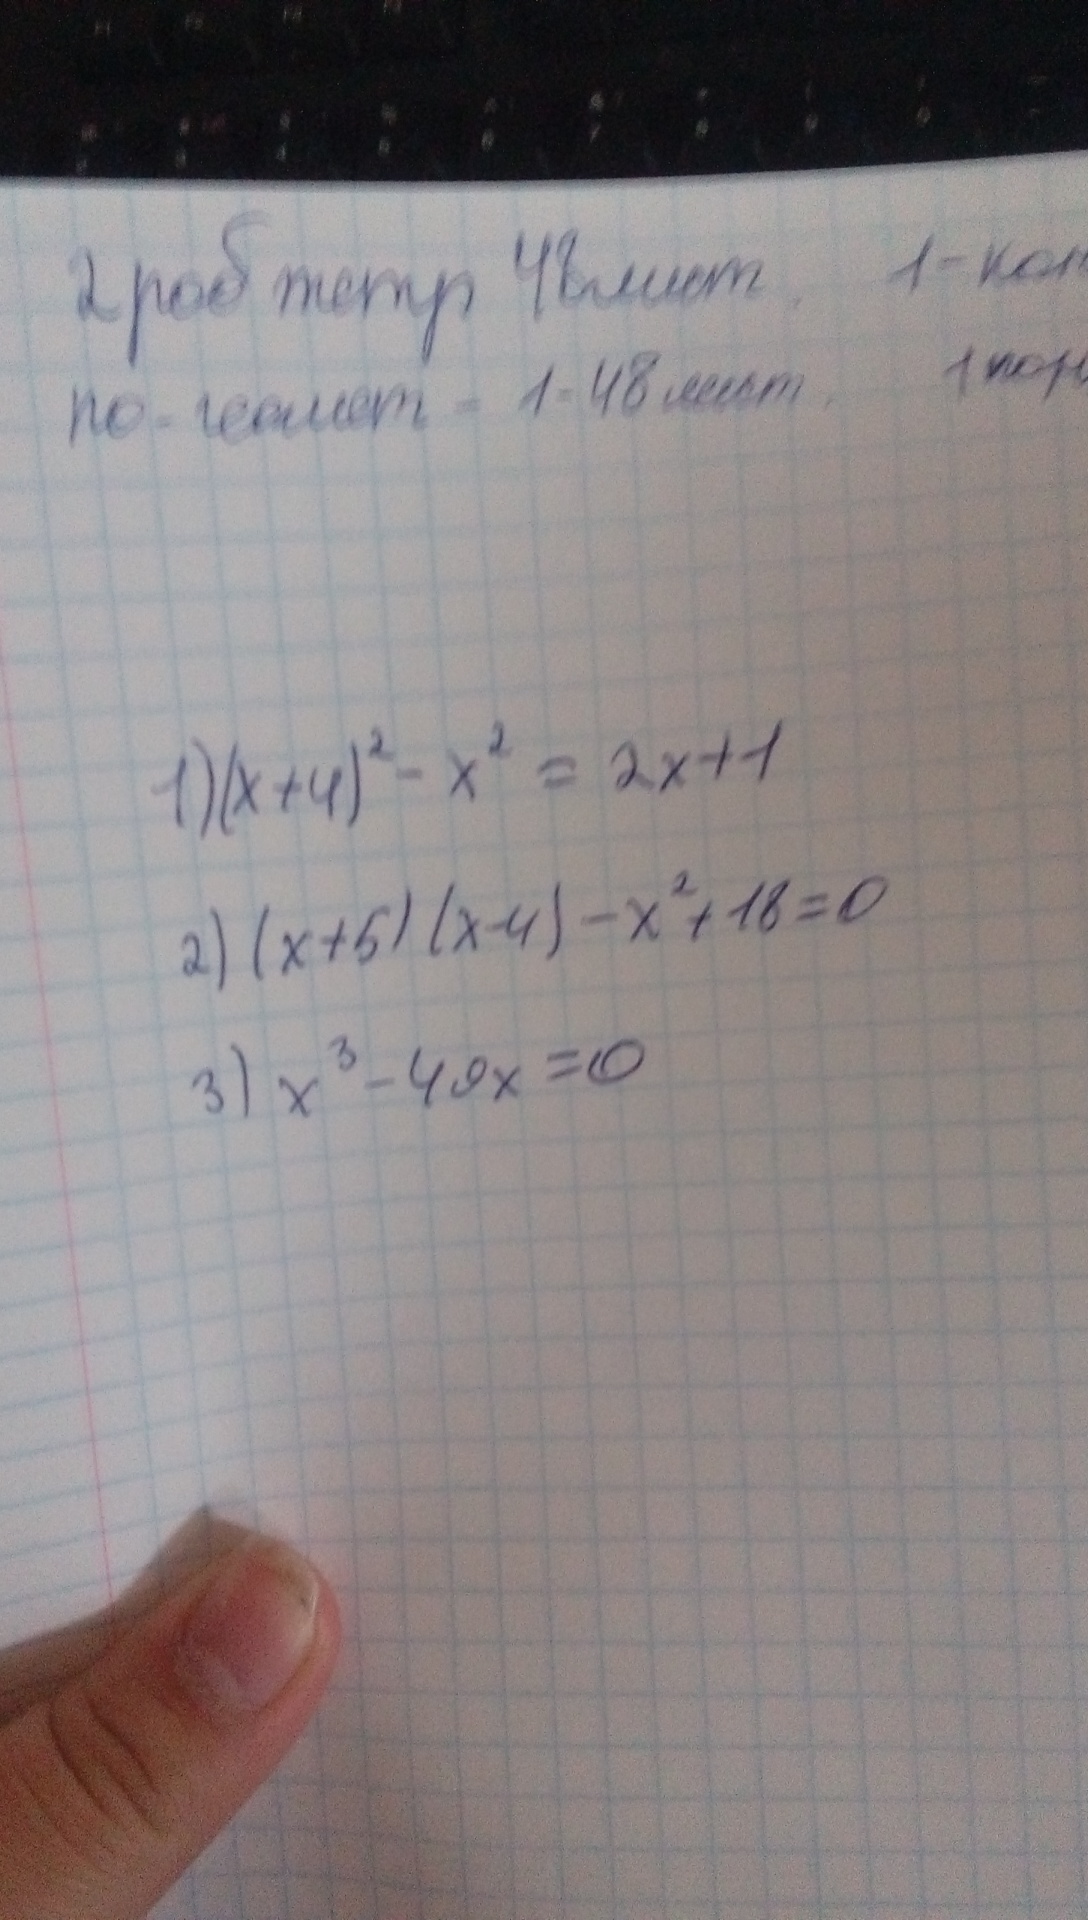 2 роб тетр 48 лист. 1-кон
по-геомет - 1-48 лист.
1) (x+4)² - x² = 2x+1
2) (x+5) (x-4) - x² + 18 = 0
3) x³ - 49x = 0